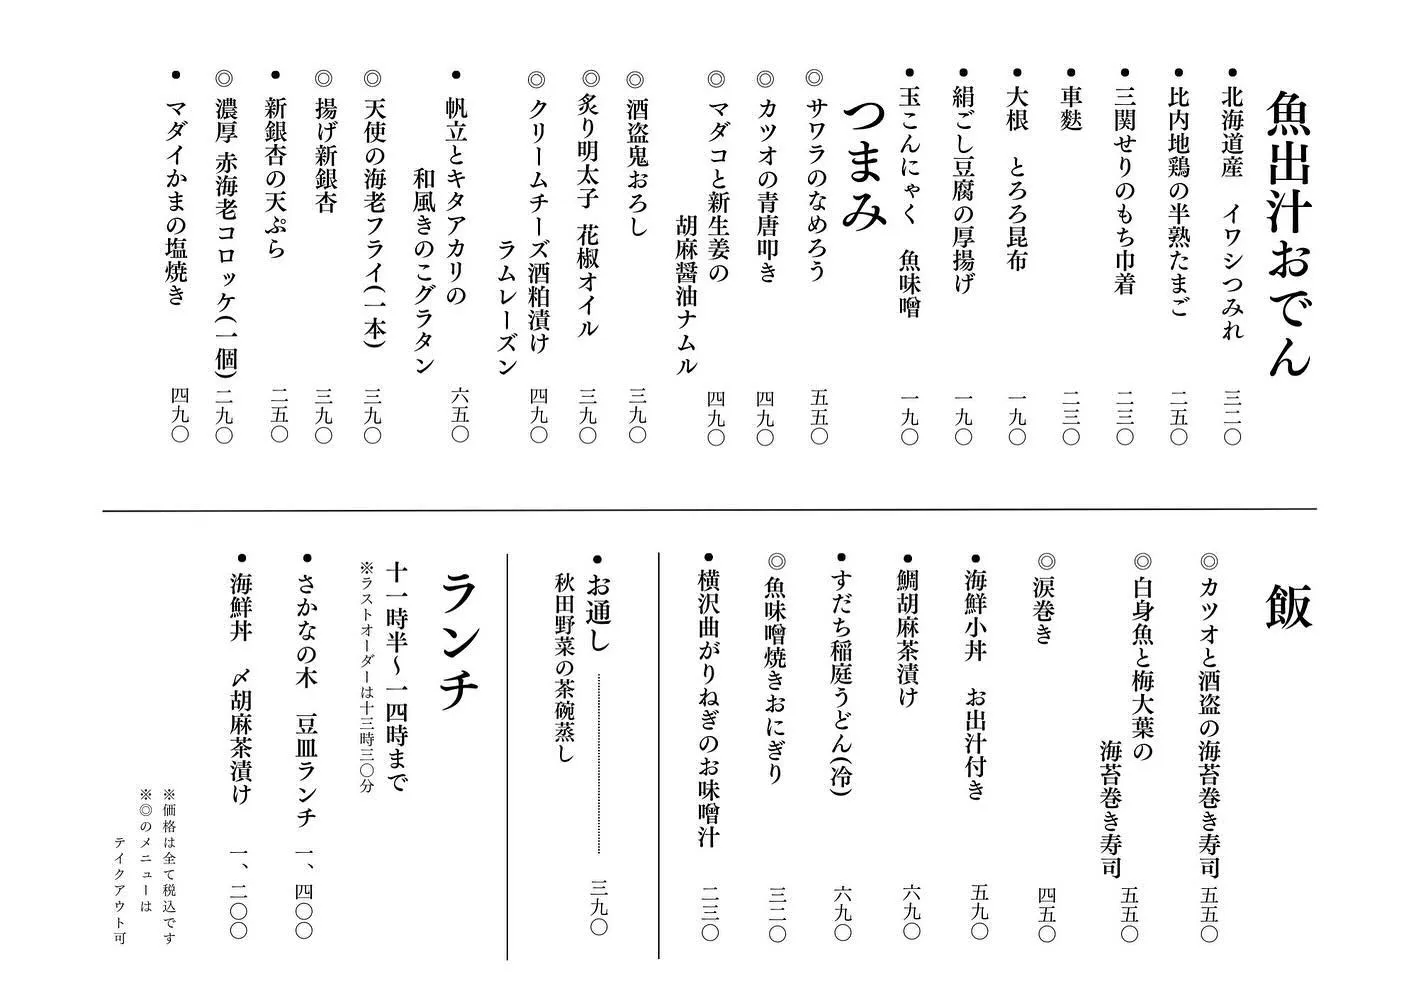 魚出汁おでん
● 北海道産　イワシつみれ 三二〇
● 比内地鶏の半熟たまご 二五〇
● 三関せりのもち巾着 二三〇
● 車麩 二三〇
● 大根　とろろ昆布 一九〇
● 絹ごし豆腐の厚揚げ 一九〇
● 玉こんにゃく　魚味噌 一九〇
つまみ
◎ サワラのなめろう 五五〇
◎ カツオの青唐叩き 四九〇
◎ マダコと新生姜の
胡麻醤油ナムル 四九〇
◎ 酒盗鬼おろし 三九〇
◎ 炙り明太子 花椒オイル 三九〇
◎ クリームチーズ酒粕漬け
ラムレーズン 四九〇
● 帆立とキタアカリの
和風きのこグラタン 六五〇
◎ 天使の海老フライ(一本) 三九〇
◎ 揚げ新銀杏 三九〇
● 新銀杏の天ぷら 二五〇
◎ 濃厚 赤海老コロッケ(一個) 二九〇
● マダイかまの塩焼き 四九〇
飯
◎ カツオと酒盗の海苔巻き寿司 五五〇
◎ 白身魚と梅大葉の
海苔巻き寿司 五五〇
◎ 涙巻き 四五〇
● 海鮮小丼　お出汁付き 五九〇
● 鯛胡麻茶漬け 六九〇
● すだち稲庭うどん(冷) 六九〇
◎ 魚味噌焼きおにぎり 三二〇
● 横沢曲がりねぎのお味噌汁 二三〇
● お通し 三九〇
秋田野菜の茶碗蒸し
ランチ
十一時半〜一四時まで
※ラストオーダーは十三時三〇分
● さかなの木　豆皿ランチ 一、四〇〇
● 海鮮丼　〆胡麻茶漬け 一、二〇〇
※価格は全て税込です
※◎のメニューは
テイクアウト可